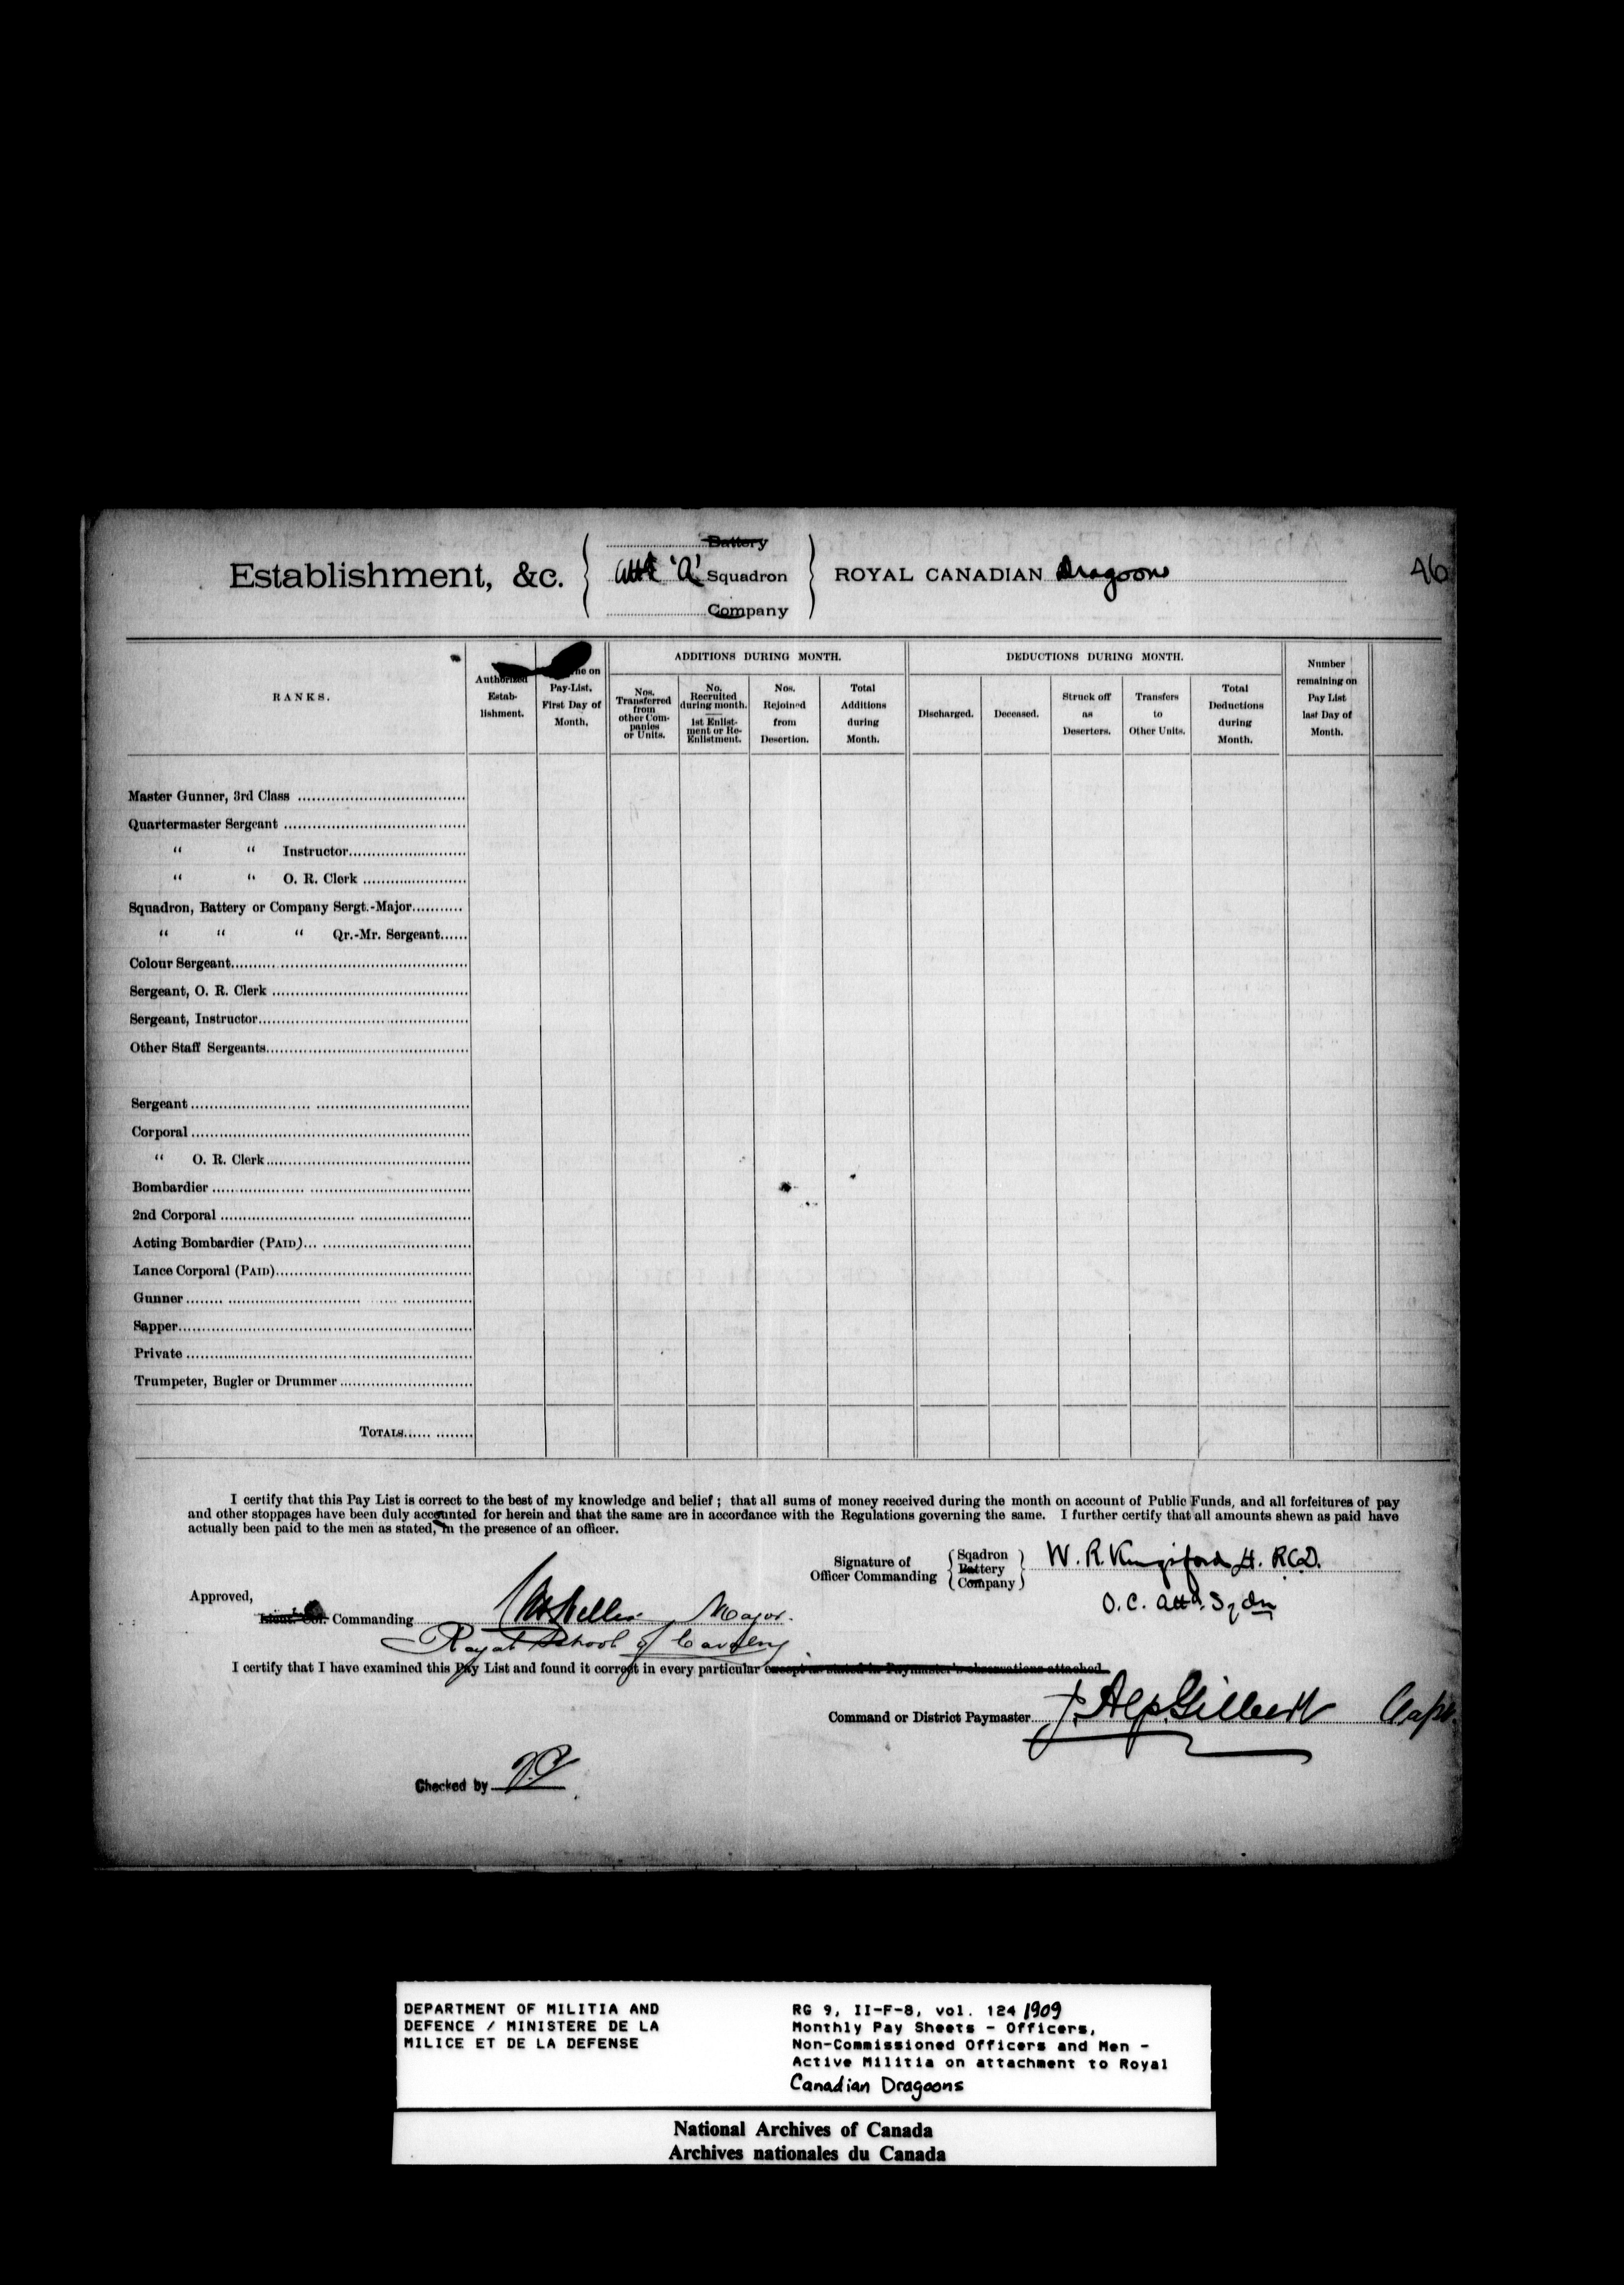 Establishment, &c.
Battery
att'd 'A' Squadron
Company
ROYAL CANADIAN Dragoons
46
RANKS.
Authorized Estab-lishment.
on Pay-List, First Day of Month.
ADDITIONS DURING MONTH.
Nos. Transferred from other Com-panies or Units.
No. Recruited during month. 1st Enlist-ment or Re-Enlistment.
Nos. Rejoined from Desertion.
Total Additions during Month.
DEDUCTIONS DURING MONTH.
Discharged.
Deceased.
Struck off as Deserters.
Transfers to Other Units.
Total Deductions during Month.
Number remaining on Pay List last Day of Month.
Master Gunner, 3rd Class
Quartermaster Sergeant
" " Instructor
" " O. R. Clerk
Squadron, Battery or Company Sergt.-Major
" " " Qr.-Mr. Sergeant
Colour Sergeant
Sergeant, O. R. Clerk
Sergeant, Instructor
Other Staff Sergeants
Sergeant
Corporal
" O. R. Clerk
Bombardier
2nd Corporal
Acting Bombardier (PAID)
Lance Corporal (PAID)
Gunner
Sapper
Private
Trumpeter, Bugler or Drummer
TOTALS
I certify that this Pay List is correct to the best of my knowledge and belief; that all sums of money received during the month on account of Public Funds, and all forfeitures of pay
and other stoppages have been duly accounted for herein and that the same are in accordance with the Regulations governing the same. I further certify that all amounts shewn as paid have
actually been paid to the men as stated, in the presence of an officer.
Signature of Officer Commanding
Sqadron
Battery
Company
W. R. Kingsford Lt. R.C.D.
O.C. att'd. Sqdn
Approved,
Lieut.-Col. Commanding Major.
Royal School of Cavalry
I certify that I have examined this Pay List and found it correct in every particular except as stated in Paymaster's observations attached.
Command or District Paymaster Gilbert Capt.
Checked by
DEPARTMENT OF MILITIA AND
DEFENCE / MINISTERE DE LA
MILICE ET DE LA DEFENSE
RG 9, II-F-8, vol. 124 1909
Monthly Pay Sheets - Officers,
Non-Commissioned Officers and Men -
Active Militia on attachment to Royal
Canadian Dragoons
National Archives of Canada
Archives nationales du Canada